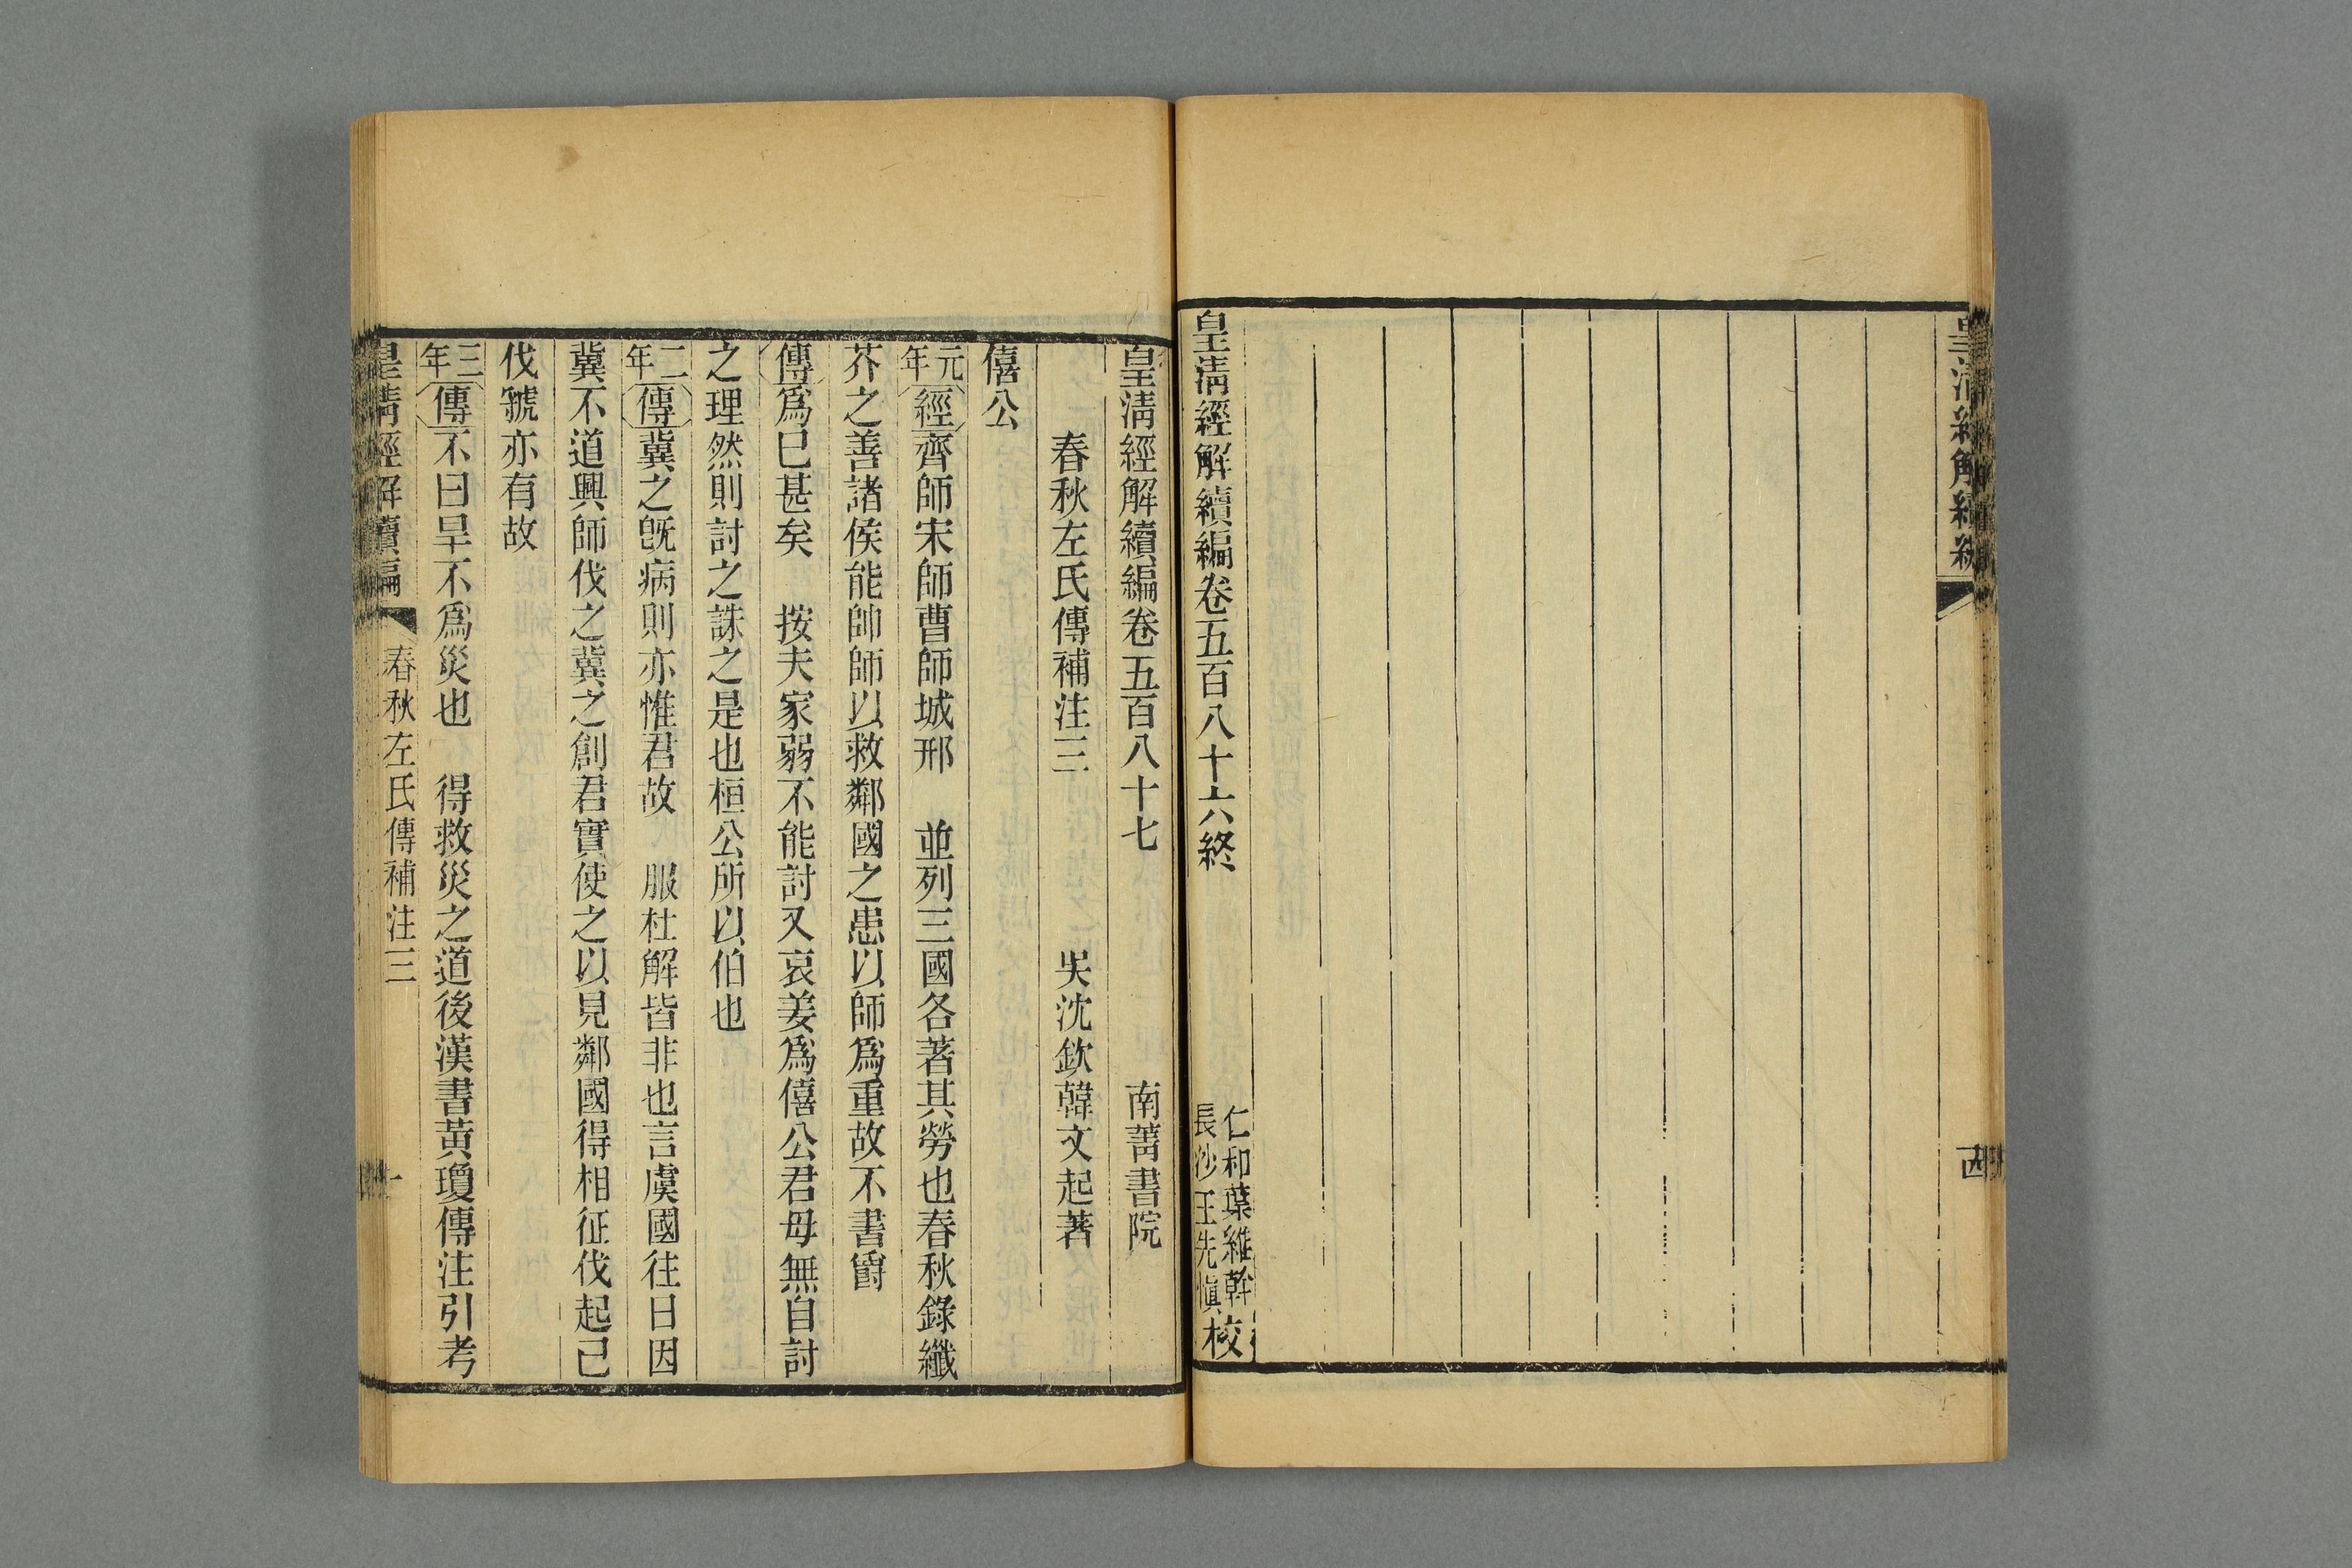 皇清經解續編
十四
皇清經解續編卷五百八十六終
仁和葉維幹
長沙王先愼
校
皇淸經解續編卷五百八十七 南菁書院
春秋左氏傳補注三 吳沈欽韓文起著
僖公
元年經齊師宋師曹師城邢 並列三國各著其勞也春秋錄纖
芥之善諸侯能帥師以救鄰國之患以師爲重故不書爵
傳爲已甚矣 按夫家弱不能討又哀姜爲僖公君母無自討
之理然則討之誅之是也桓公所以伯也
二年傳冀之旣病則亦惟君故 服杜解皆非也言虞國往日因
冀不道興師伐之冀之創君實使之以見鄰國得相征伐起己
伐虢亦有故
三年傳不曰旱不爲災也 得救災之道後漢書黃瓊傳注引考
皇淸經解續編 春秋左氏傳補注三 一